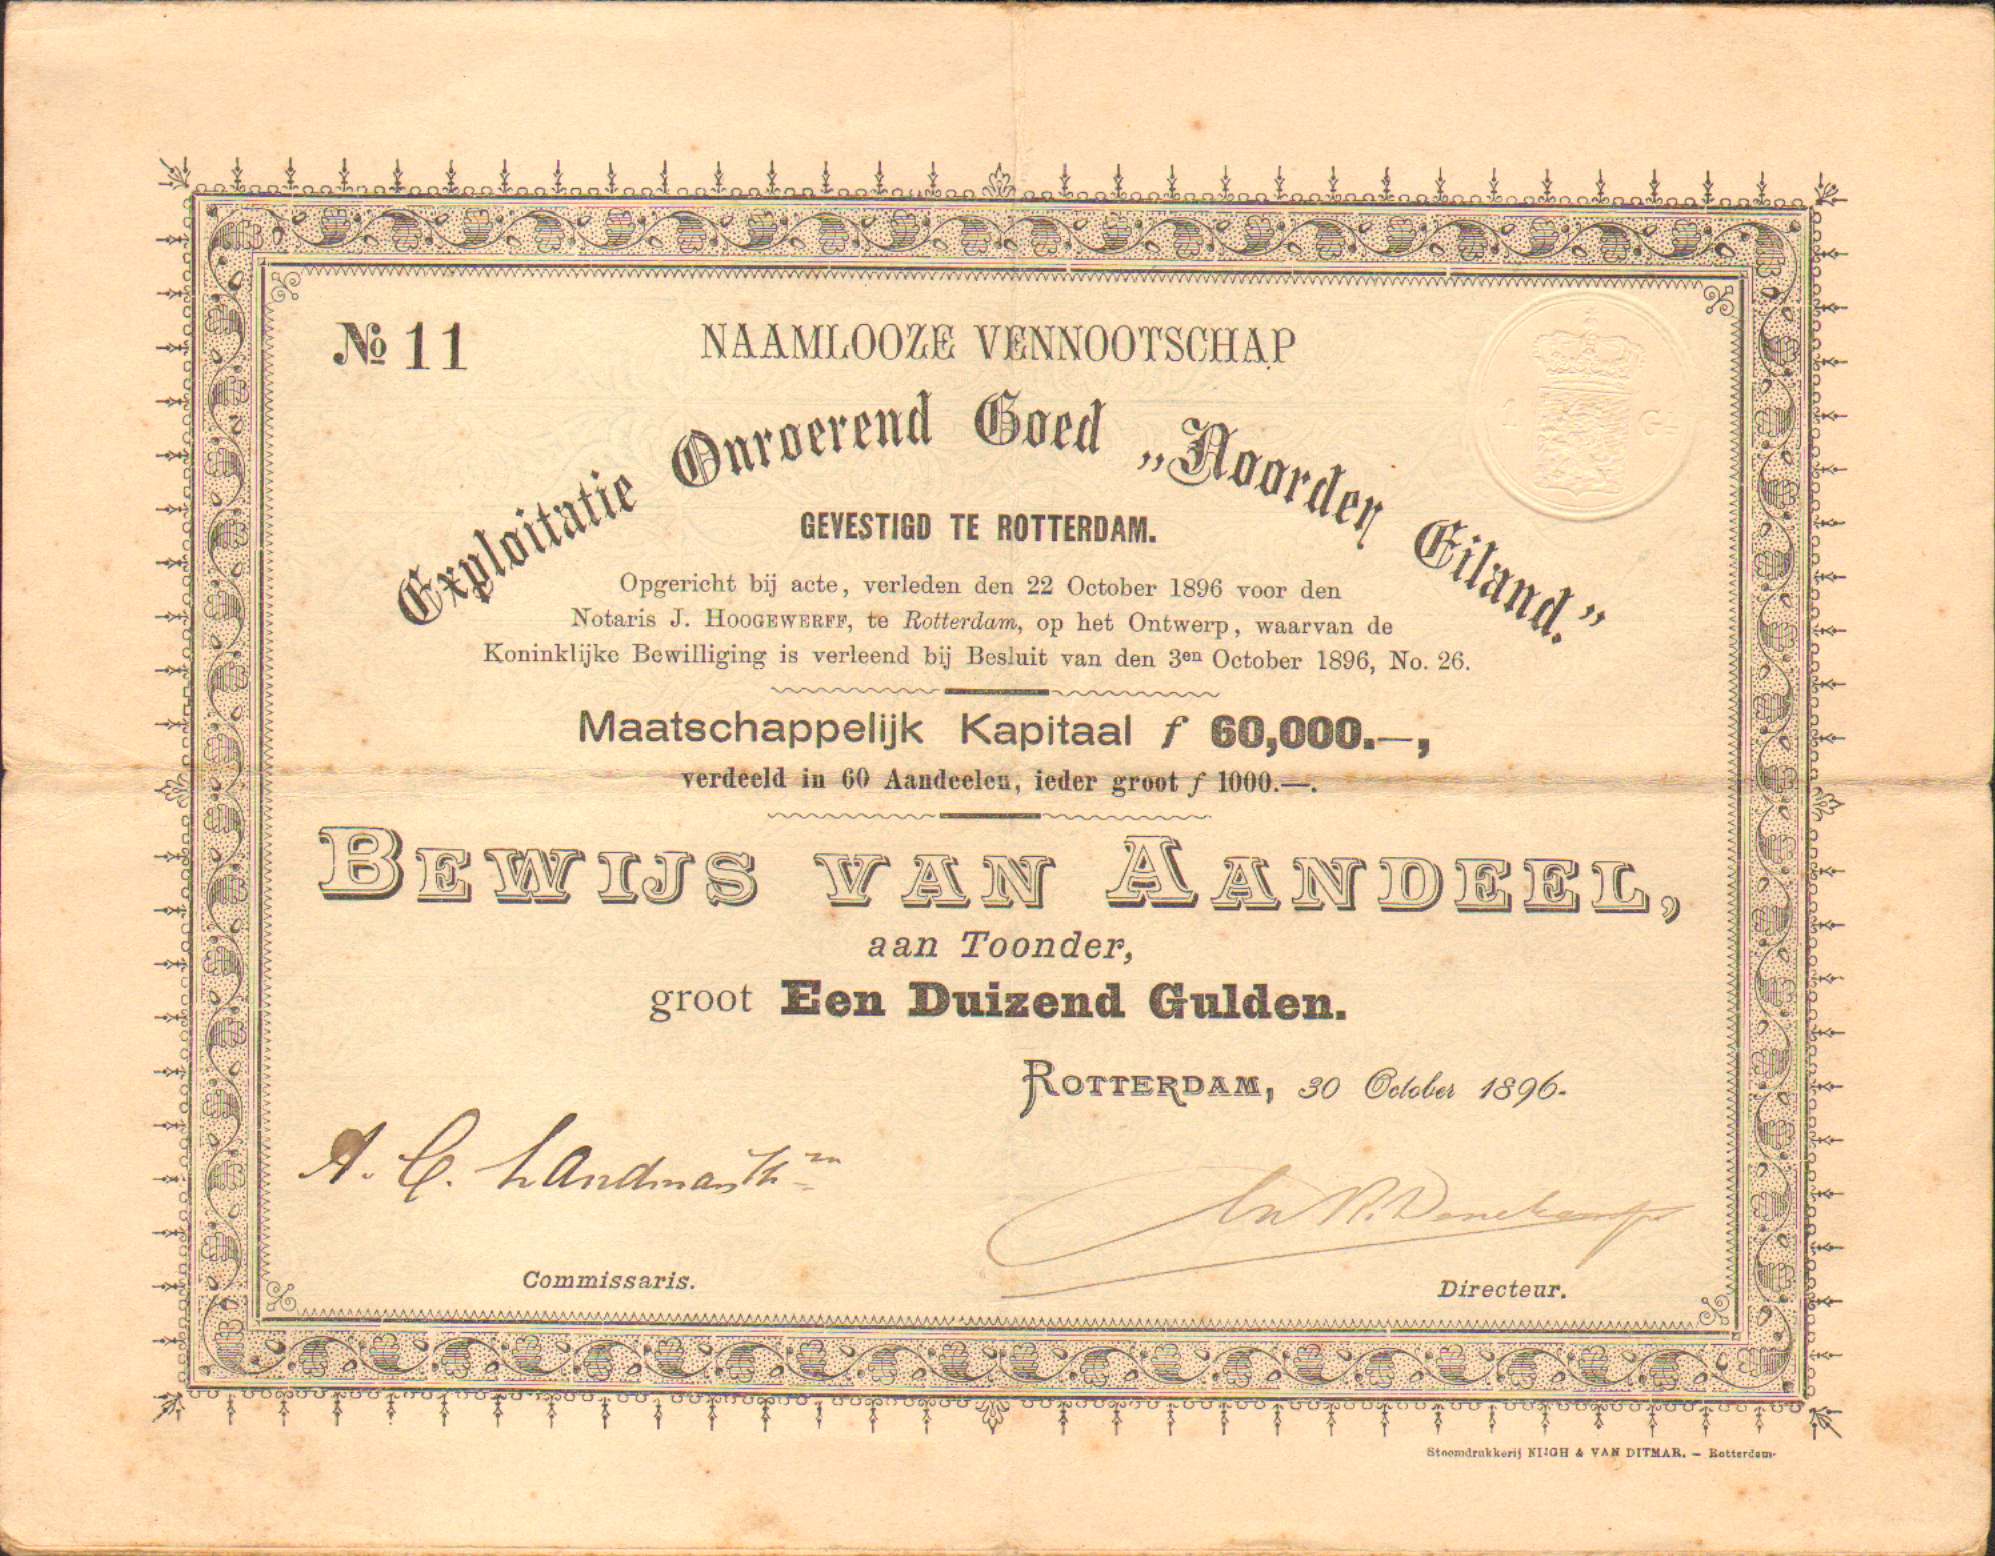 № 11
NAAMLOOZE VENNOOTSCHAP
Exploitatie Onroerend Goed „Noorder Eiland.”
GEVESTIGD TE ROTTERDAM.
Opgericht bij acte, verleden den 22 October 1896 voor den
Notaris J. HOOGEWERFF, te Rotterdam, op het Ontwerp, waarvan de
Koninklijke Bewilliging is verleend bij Besluit van den 3en October 1896, No. 26.
Maatschappelijk Kapitaal f 60,000.—,
verdeeld in 60 Aandeelen, ieder groot f 1000.—.
BEWIJS VAN AANDEEL,
aan Toonder,
groot Een Duizend Gulden.
ROTTERDAM, 30 October 1896.
A. C.
Commissaris.
Directeur.
Stoomdrukkerij NIJGH & VAN DITMAR. – Rotterdam.